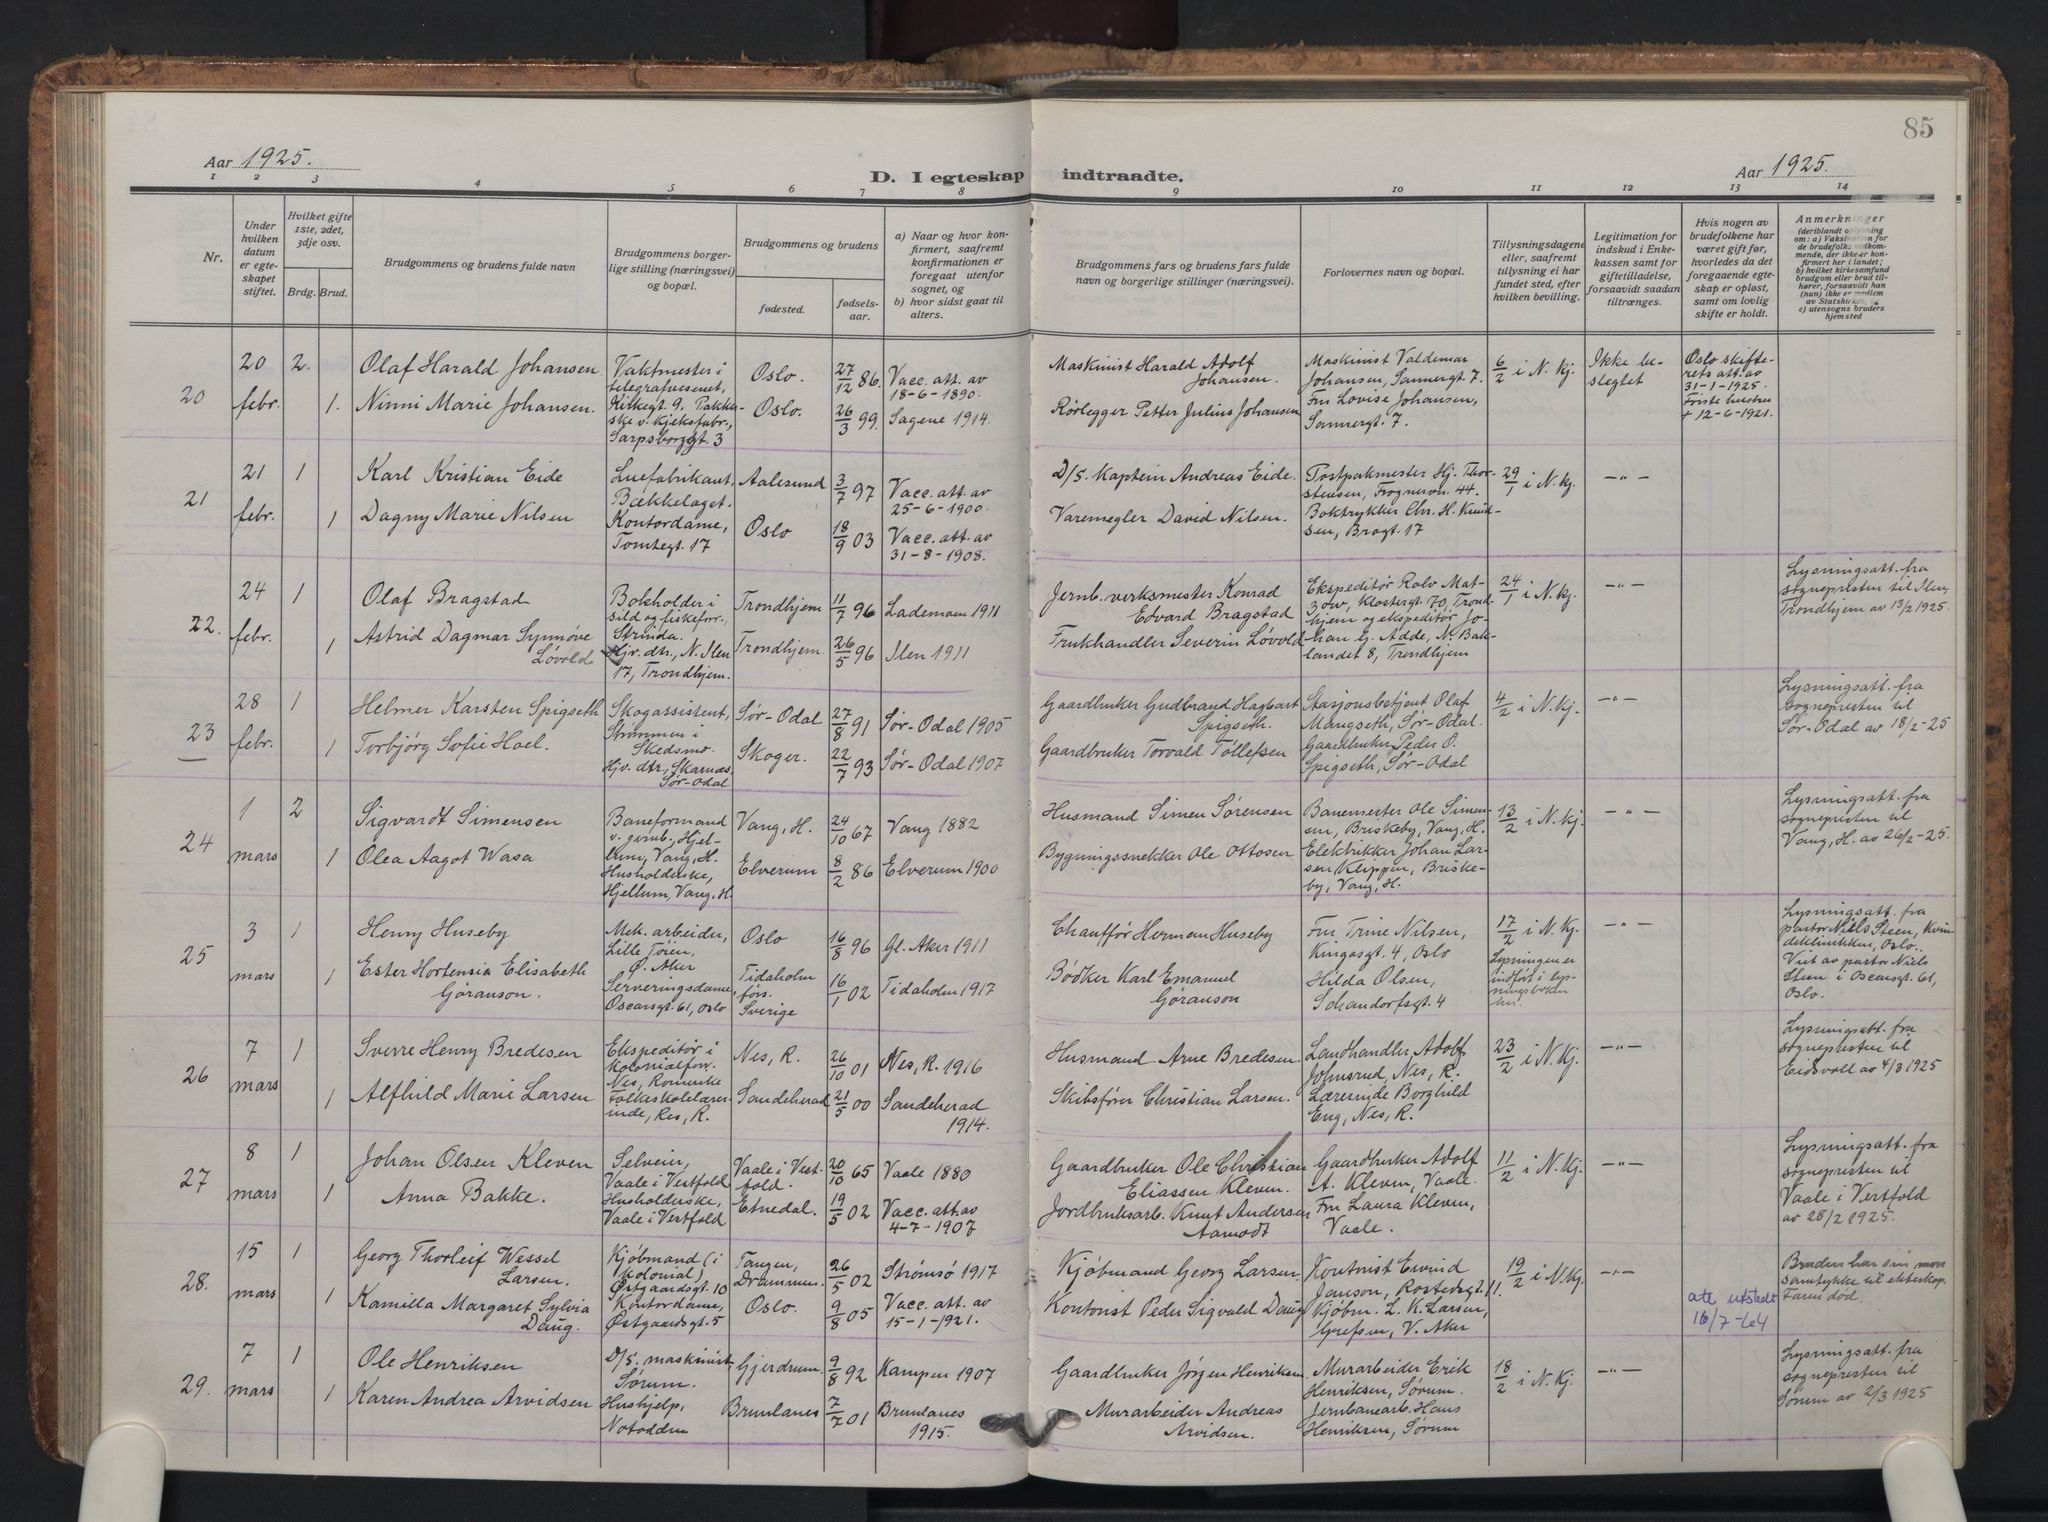 85
Aar 1925.
D. I egteskap indtraadte.
Aar 1925.
1 2 3 4 5 6 7 8 9 10 11 12 13 14
Nr.
Under hvilken datum er egteskapet stiftet.
Hvilket gifte 1ste, 2det, 3dje osv.
Brdg. Brud.
Brudgommens og brudens fulde navn
Brudgommens borgerlige stilling (næringsvei) og bopæl.
Brudgommens og brudens
fødested.
fødselsaar.
a) Naar og hvor konfirmert, saafremt konfirmationen er foregaat utenfor sognet, og
b) hvor sidst gaat til alters.
Brudgommens fars og brudens fars fulde navn og borgerlige stillinger (næringsvei).
Forlovernes navn og bopæl.
Tillysningsdagene eller, saafremt tillysning ei har fundet sted, efter hvilken bevilling.
Legitimation for indskud i Enkekassen samt for giftetilladelse, forsaavidt saadan tiltrænges.
Hvis nogen av brudefolkene har været gift før, hvorledes da det foregaaende egteskap er opløst, samt om lovlig skifte er holdt.
Anmerkninger
(deriblandt oplysning om: a) Vaksination for de brudefolks vedkommende, der ikke er konfirmert her i landet; b) hvilket kirkesamfund brudgom eller brud tilhører, forsaavidt han (hun) ikke er medlem av Statskirken, og c) utensogns bruders hjemsted
20
20 febr.
2.
1.
Olaf Harald Johansen
Ninni Marie Johansen.
Vaktmester i
telegrafvesenet,
Kirkegt 9. Pakker-
ske v. kjeksfabr.,
Sarpsborggt. 3
Oslo.
Oslo.
27/12 86.
26/3 99.
Vacc. att. av
18-6-1890.
Sagene 1914.
Maskinist Harald Adolf
Johansen.
Rørlegger Petter Julius Johansen
Maskinist Valdemar
Johansen, Sannergt. 7.
Fru Lovise Johansen,
Sannergt. 7.
6/2 i N. Kj.
Ikke be-
slegtet
Oslo skifte-
rets att. av
31-1-1925.
Første hustru
+ 12-6-1921.
21
21 febr.
1
1
Karl Kristian Eide
Dagny Marie Nilsen
Luefabrikant,
Bækkelaget.
Kontordame,
Tomtegt. 17
Aalesund
Oslo
3/7 97
18/9 03
Vacc. att. av
25-6-1900.
Vacc. att. av
31-8-1908.
D/S. Kaptein Andreas Eide.
Varemegler David Nilsen.
Postpakmester Hj. Thor-
stensen, Frognervn. 44.
Boktrykker Chr. H. Knud-
sen, Bragt. 17
29/1 i N. Kj.
-"-
22.
24 febr.
1
1
Olaf Bragstad
Astrid Dagmar Synnøve
Løvold
Bokholder i
sild og fiskeforr.,
Strinda.
Hjv. dtr., N. Ilen
17, Trondhjem.
Trondhjem
Trondhjem
11/7 96
26/5 96
Lademoen 1911
Ilen 1911
Jernb. verksmester Konrad
Edvard Bragstad
Frukthandler Severin Løvold
Ekspeditør Rolv Mat-
zow, Klostergt. 70, Trond-
hjem og ekspeditør Jo-
han G. Adde, N. Bak-
landet 8, Trondhjem
24/1 i N. Kj.
-"-
Lysningsatt. fra
sognepresten til Ilen,
Trondhjem av 13/2 1925.
23
28 febr.
1
1
Helmer Karsten Spigseth
Torbjørg Sofie Hoel.
Skogassistent,
Strømmen i
Skedsmo.
Hjv. dtr., Skarnes,
Sør-Odal
Sør-Odal
Skoger.
27/8 91
22/7 93
Sør-Odal 1905
Sør-Odal 1907
Gaardbruker Gudbrand Hagbart
Spigseth.
Gaardbruker Torvald Tollefsen
Stasjonsbetjent Olaf
Mangseth, Sør-Odal.
Gaardbruker Peder O.
Spigseth, Sør-Odal
4/2 i N. Kj.
-"-
Lysningsatt. fra
sognepresten til
Sør-Odal av 18/2-25
24
1 mars
2
1
Sigvardt Simensen
Olea Aagot Wasa
Baneformand
v. jernb., Hjel-
lum, Vang, H.
Husholderske,
Hjellum, Vang, H.
Vang, H.
Elverum
24/10 67
8/2 86
Vang 1882
Elverum 1900
Husmand Simen Sørensen
Bygningssnekker Ole Ottosen
Banemester Ole Simen-
sen, Briskeby, Vang, H.
Elektrikker Johan Lar-
sen Klippen, Briske-
by, Vang, H.
13/2 i N. Kj.
-"-
Lysningsatt. fra
sognepresten til
Vang, H. av 26/2-25.
25
3 mars
1
1
Henry Huseby
Ester Hortensia Elisabeth
Gøranson.
Mek. arbeider,
Lille Tøien,
Ø. Aker
Serveringsdame,
Oscarsgt. 61, Oslo
Oslo
Tidaholm
førs.
Sverige
16/8 96
16/1 02
Gl. Aker 1911
Tidaholm 1917
Chauffør Herman Huseby
Bødker Karl Emanuel
Gøranson
Fru Trine Nilsen,
Kingosgt. 4, Oslo
Hilda Olsen,
Schandorfsgt. 4
17/2 i N. Kj.
Lysningen er
indført i lys-
ningsboken
her.
-"-
Lysningsatt. fra
pastor Niels Steen, Kvin
deklinikken, Oslo.
Viet av pastor Niels
Steen i Oscarsgt. 61,
Oslo.
26
7 mars
1
1
Sverre Henry Bredesen
Alfhild Marie Larsen
Ekspeditør i
kolonialforr.
Nes, Romerike
Folkeskolelærer-
inde, Nes, R.
Nes, R.
Sandeherad
26/10 01
21/5 00
Nes, R. 1916
Sandeherad
1914.
Husmand Arne Bredesen.
Skibsfører Christian Larsen.
Landhandler Adolf
Johnsrud, Nes, R.
Lærerinde Borghild
Eng, Nes, R.
23/2 i N. Kj.
-"-
Lysningsatt. fra
sognepresten til
Eidsvoll av 4/3 1925
27
8 mars
1
1
Johan Olsen Kleven
Anna Bakke.
Selveier,
Vaale i Vestfold
Husholderske,
Vaale i Vestfold
Vaale i Vest-
fold.
Etnedal.
20/10 65
19/5 02
Vaale 1880
Vacc. att. av
4-7-1907
Gaardbruker Ole Christian
Eliassen Kleven.
Jordbruksarb. Knut Andersen
Aamodt
Gaardbruker Adolf
A. Kleven, Vaale.
Fru Laura Kleven,
Vaale.
11/2 i N. Kj.
-"-
Lysningsatt. fra
sognepresten til
Vaale i Vestfold
av 28/2 1925.
28.
15 mars
1
1
Georg Thorleif Wessel
Larsen.
Kamilla Margaret Sylvia
Daug.
Kjøbmand (i
kolonial)
Østgaardsgt 10
Kontordame,
Østgaardsgt. 5
Tangen,
Drammen.
Oslo.
26/5 02
9/8 05
Strømsø 1917
Vacc. att. av
15-1-1921.
Kjøbmand Georg Larsen.
Kontorist Peder Sigvald Daug
Kontorist Eivind
Janson, Rostedsgt. 11.
Kjøbm. L. K. Larsen,
Grefsen, V. Aker
19/2 i N. Kj.
-"-
att utstedt
16/7-64
Bruden har sin mors
samtykke til ekteskap.
Faren død.
29.
7 mars
1
1
Ole Henriksen
Karen Andrea Arvidsen
D/S. maskinist
Sørum.
Hushjelp,
Notodden
Gjerdrum.
Brunlanes
9/8 92
7/7 01
Kampen 1907
Brunlanes
1915.
Gaardbruker Jørgen Henriksen
Murarbeider Andreas
Arvidsen.
Murarbeider Erik
Henriksen, Sørum.
Jernbanearb. Hans
Henriksen, Sørum
18/2 i N. Kj.
-"-
Lysningsatt. fra
sognepresten til
Sørum av 2/3 1925